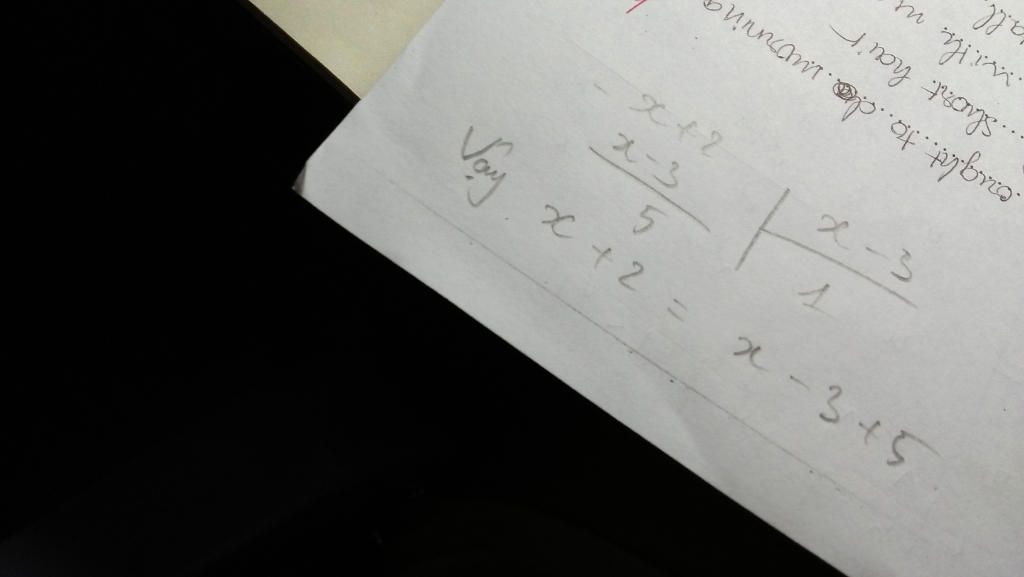 - x+2
x-3 | x-3
5 | 1
Vậy x + 2 = x - 3 + 5
caught to do
short hair
with